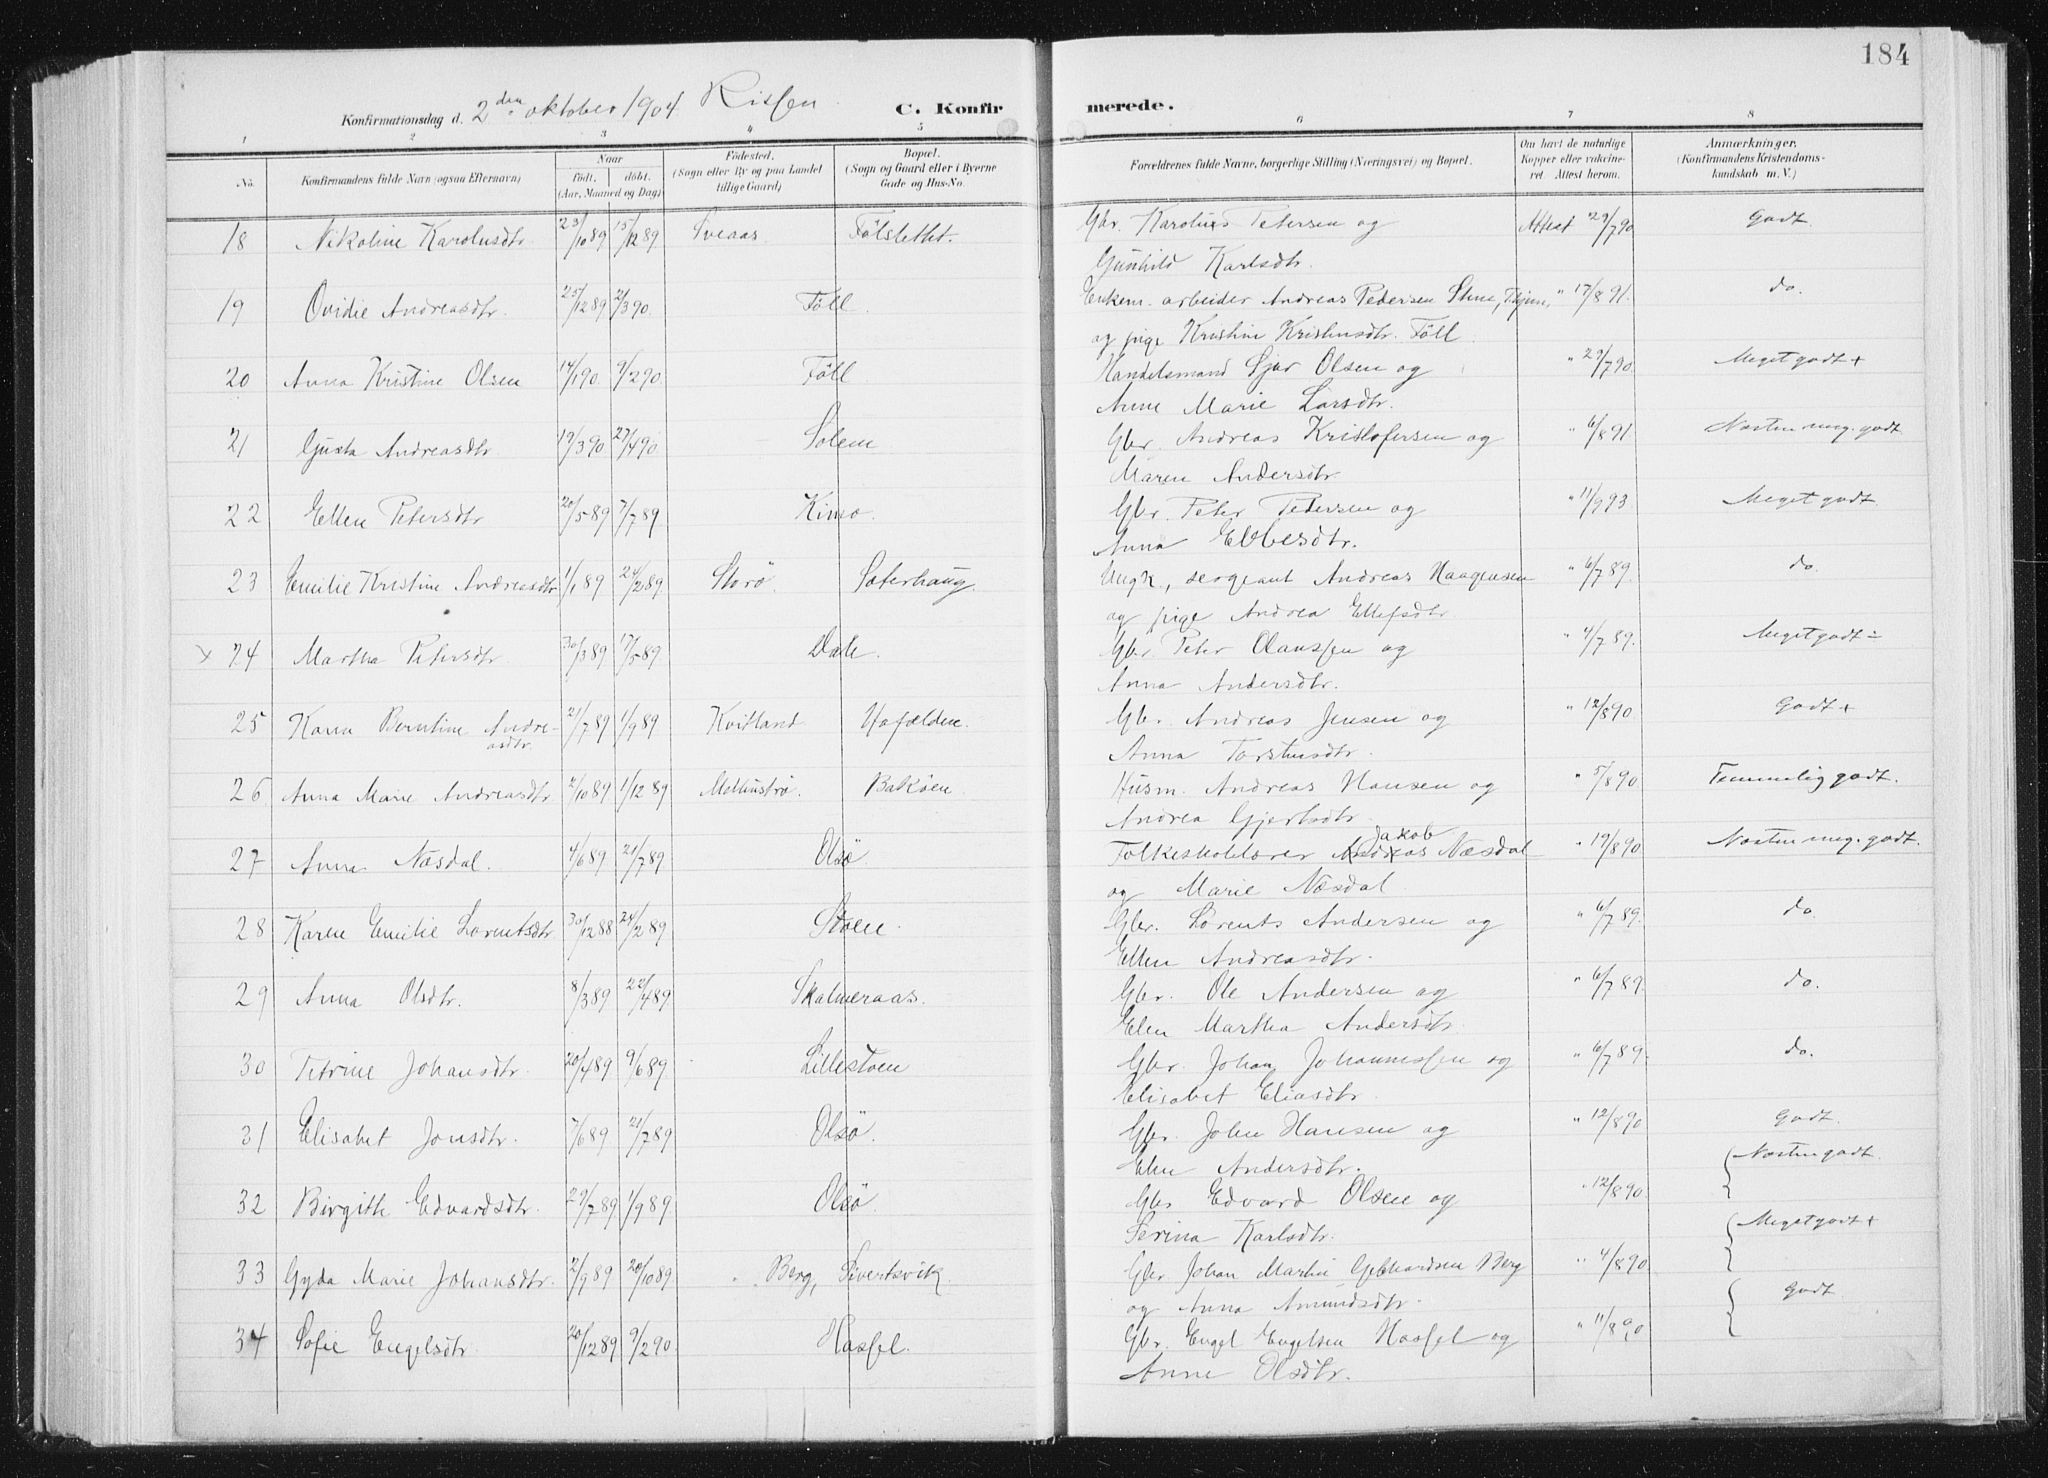 184
Konfirmationsdag d. 2den oktober 1904. Rissen
C. Konfirmerede.
1 2 3 4 5 6 7 8
No. Konfirmandens fulde Navn (ogsaa Efternavn) Naar født. døbt. (Aar, Maaned og Dag) Fødested. (Sogn eller By og paa Landet tillige Gaard) Bopæl. (Sogn og Gaard eller i Byerne Gade og Hus-No. Forældrenes fulde Navne, borgerlige Stilling (Næringsvei) og Bopæl. Om havt de naturlige Kopper eller vaccineret. Attest herom. Anmærkninger. (Konfirmandens Kristendomskundskab m. V.)
18 Nikoline Karolusdtr. 23/10 89 15/12 89 Sveaas Fölslettet. Gbr. Karolius Petersen og Attest 29/7 90 Godt.
Gunhild Karlsdtr.
19 Ovidie Andreasdtr. 25/12 89 2/3 90. Föll Enkem. arbeider Andreas Pedersen " 17/8 91. do.
og pige Kristine Kristensdtr. Föll
20 Anna Kristine Olsen 14/1 90. 9/2 90. Föll Handelsmand Sjur Olsen og " 29/7 90. Meget godt +
Anne Marie Larsdtr.
21 Gjusta Andreasdtr 19/3 90 27/4 90. Solem Gbr. Andreas Kristofersen og " 6/8 91 Næsten meg. godt
Maren Andersdtr.
22 Ellen Petersdtr 20/5 89 7/7 89 Kimo. Gbr. Peter Pedersen og " 11/9 93 Meget godt.
Anna Ebbesdtr.
23 Emilie Kristine Andreasdtr 1/1 89 24/2 89. Storö. Sæterhaug. Ungk., sergeant Andreas Haagensen " 6/7 89. do.
og pige Andrea Ellefsdtr
x 24 Martha Petersdtr. 30/3 89 17/5 89 Dale. Gbr. Peter Olaussen og " 4/7 89. Meget godt ÷
Anna Andersdtr.
25 Karen Berntine Andreasdtr. 21/7 89 1/9 89 Kvitland Hafælden. Gbr. Andreas Jensen og " 12/8 90. Godt +
Anna Torstensdtr.
26 Anna Marie Andreasdtr. 2/10 89 1/12 89 Melhustrø. Bakøen. Husm. Andreas Hansen og " 5/8 90 Temmelig godt.
Andrea Gjertsdtr.
27 Anna Næsdal. 4/6 89 21/7 89 Olsö Folkeskolelærer Jakob Næsdal " 19/8 90 Næsten meg. godt.
og Marie Næsdal.
28 Karen Emilie Lorentsdtr 30/12 88 24/2 89 Stöen. Gbr. Lorents Andersen og " 6/7 89. do.
Ellen Andreasdtr.
29 Anna Olsdtr. 8/3 89 22/4 89. Skalmeraas. Gbr. Ole Andersen og " 6/7 89. do.
Elen Martha Andersdtr.
30 Petrine Johansdtr. 20/4 89 9/6 89. Lillestöen Gbr. Johan Johannessen og " 6/7 89. do.
Elisabet Eliasdtr.
31 Elisabet Jonsdtr. 7/6 89 21/7 89 Olsö. Gbr. John Hansen og " 12/8 90 Godt.
Elen Andersdtr.
32 Birgithe Edvardsdtr. 29/7 89 1/9 89 Olsö Gbr Edvard Olsen og " 12/8 90. Næsten godt.
Serina Karlsdtr.
33 Gyda Marie Johansdtr. 2/9 89 20/10 89. " Berg, Sivertsvik. Gbr. Johan Martin Gebhardsen Berg " 4/8 90 Meget godt +
og Anna Amundsdtr.
34 Sofie Engelsdtr. 20/12 89 9/2 90. Hasfel. Gbr. Engel Engelsen Hasfel og " 11/8 90 Godt
Anne Olsdtr.